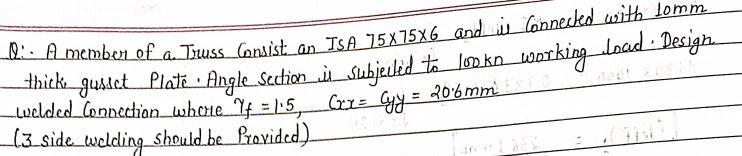 Q:- A member of a Truss Consist an ISA 75x75x6 and is Connected with 10mm
thick gusset Plate. Angle Section is subjected to 100kn working load. Design
welded Connection where γf = 1.5, Cxx = Cyy = 20.6mm
(3 side welding should be Provided)